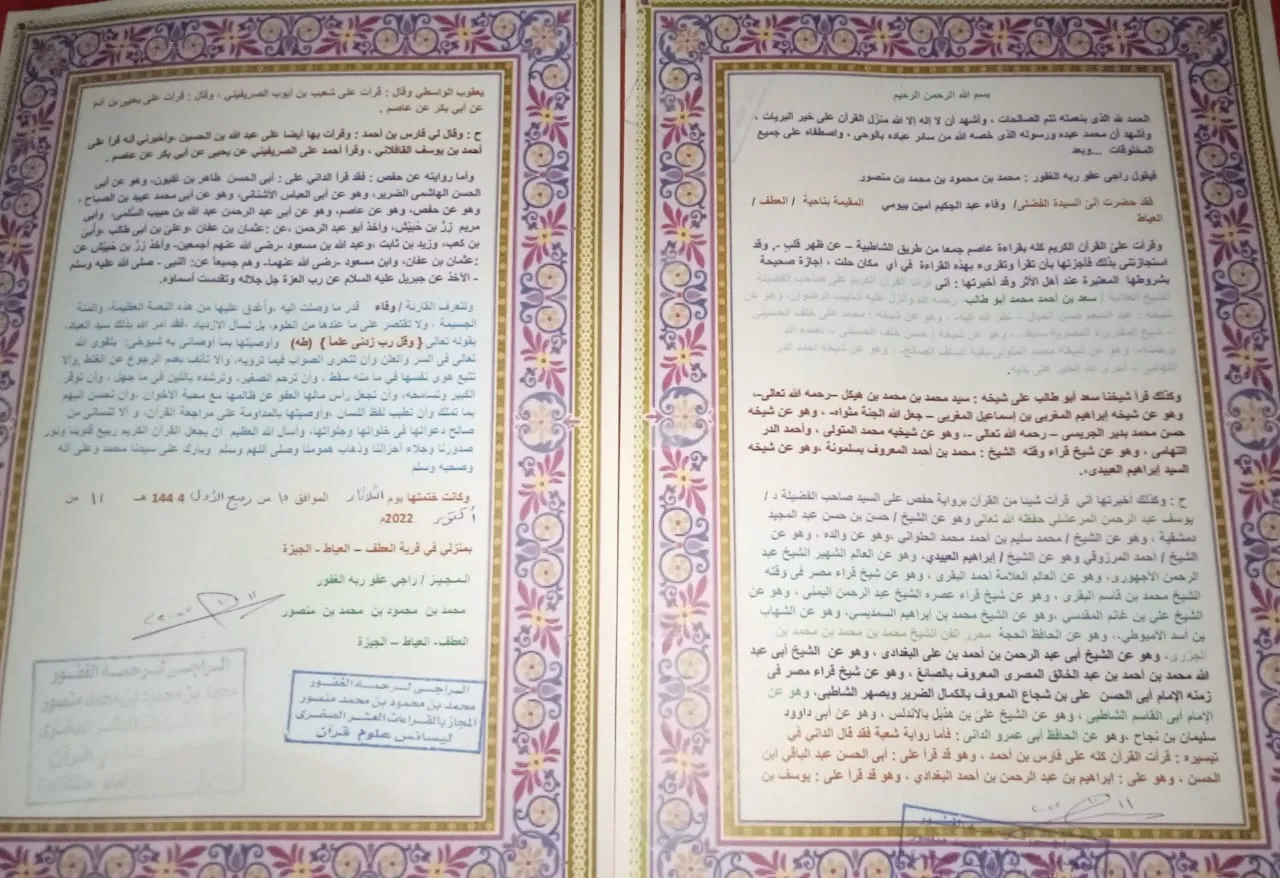 بسم الله الرحمن الرحيم
الحمد لله الذى بنعمته تتم الصالحات ، وأشهد أن لا إله إلا الله منزل القرآن على خير البريات ،
وأشهد أن محمد عبده ورسوله الذى خصه الله من سائر عباده بالوحى ، واصطفاه على جميع
المخلوقات ...وبعد
فيقول راجى عفو ربه الغفور : محمد بن محمود بن محمد بن منصور
فقد حضرت إلىَ السيدة الفضلى/ وفاء عبد الحكيم أمين بيومي المقيمة بناحية / العطف /
العياط
وقرأت علىَ القرآن الكريم كله بقراءة عاصم جمعا من طريق الشاطبية – عن ظهر قلبٍ -. وقد
استجازتنى بذلك فأجزتها بأن تقرأ وتقرىء بهذه القراءة في أي مكان حلت ، إجازة صحيحة
بشروطها المعتبرة عند أهل الأثر وقد أخبرتها : أنى قرأت القرآن الكريم على صاحب الفضيلة
الشيخ العلامة / سعد بن أحمد محمد أبو طالب رحمه الله وأنزل عليه شآبيب الرضوان، وهو عن
شيخه : عبد المنعم حسن الخيال – نظر الله إليه- . وهو عن شيخه : محمد على خلف الحسينى
– شيخ القراء المصرية سابقا- ، وهو عن شيخه : حسن خلف الحسينى – تغمده الله
برحمته-، وهو عن شيخه محمد المتولى-بقية السلف الصالح- . وهو عن شيخه أحمد الدر
التهامى – أجرى الله الخير على يديه.
وكذلك قرأ شيخنا سعد أبو طالب على شيخه : سيد محمد بن محمد بن هيكل –رحمه الله تعالى-،
وهو عن شيخه إبراهيم المغربى بن إسماعيل المغربى – جعل الله الجنة مثواه- ، وهو عن شيخه
حسن محمد بدير الجريسى – رحمه الله تعالى -. وهو عن شيخيه محمد المتولى ، وأحمد الدر
التهامى ، وهو عن شيخ قراء وقته الشيخ : محمد بن أحمد المعروف بسلمونة –وهو عن شيخه
السيد إبراهيم العبيدى،.
ح : وكذلك أخبرتها أني قرأت شيئا من القرآن برواية حفص على السيد صاحب الفضيلة د /
يوسف عبد الرحمن المرعشلي حفظه الله تعالى وهو عن الشيخ / حسن بن حسن عبد المجيد
دمشقية . وهو عن الشيخ / محمد سليم بن أحمد محمد الحلوانى ،وهو عن والده ، وهو عن
الشيخ / أحمد المرزوقي وهو عن الشيخ / إبراهيم العبيدي، وهو عن العالم الشهير الشيخ عبد
الرحمن الأجهورى، وهو عن العالم العلامة أحمد البقرى ، وهو عن شيخ قراء مصر فى وقته
الشيخ محمد بن قاسم البقرى ، وهو عن شيخ قراء عصره الشيخ عبد الرحمن اليمنى ، وهو عن
الشيخ على بن غانم المقدسي ،وهو عن الشيخ محمد بن إبراهيم السمديسي، وهو عن الشهاب
بن أسد الأميوطى،، وهو عن الحافظ الحجة محرر الفن الشيخ محمد بن محمد بن محمد بن
الجزرى، وهو عن الشيخ أبى عبد الرحمن بن أحمد بن على البغدادى ، وهو عن الشيخ أبى عبد
الله محمد بن أحمد بن عبد الخالق المصرى المعروف بالصائغ ، وهو عن شيخ قراء مصر فى
زمنه الإمام أبى الحسن على بن شجاع المعروف بالكمال الضرير وبصهر الشاطبى، وهو عن
الإمام أبى القاسم الشاطبى ، وهو عن الشيخ علىَ بن هذيل بالأندلس ، وهو عن أبى داوود
سليمان بن نجاح ،وهو عن الحافظ أبى عمرو الدانى : فأما رواية شعبة فقد قال الدانى في
تيسيره : قرأت القرآن كله على فارس بن أحمد ، وهو قد قرأ على : أبى الحسن عبد الباقى ابن
الحسن ، وهو على : إبراهيم بن عبد الرحمن بن أحمد البغدادي ، وهو قد قرأ على : يوسف بن
١١ ١٠ ٢٠٢٢
يعقوب الواسطي وقال : قرأت على شعيب بن أيوب الصريفيني ، وقال : قرأت على يحيى بن آدم
عن أبي بكر عن عاصم .
ح : وقال لي فارس بن أحمد : وقرأت بها أيضا على عبد الله بن الحسين ،وأخبرني أنه قرأ على
أحمد بن يوسف القافلاني ، وقرأ أحمد على الصريفيني عن يحيى عن أبي بكر عن عاصم .
وأما روايته عن حفص : فقد قرأ الداني على : أبى الحسن طاهر بن غلبون، وهو عن أبى
الحسن الهاشمى الضرير، وهو عن أبى العباس الأشنانى، وهو عن أبى محمد عبيد بن الصباح ،
وهو عن حفص، وهو عن عاصم، وهو عن أبى عبد الرحمن عبد الله بن حبيب السُلمي، وأبى
مريم زرَ بن حُبيْش، وأخذ أبو عبد الرحمن ،عن :عثمان بن عفان، وعلىَ بن أبى طالب ،وأُبى
بن كعب، وزيد بن ثابت ،وعبد الله بن مسعود -رضى الله عنهم أجمعين- وأخذ زرُ بن حُبيْش عن
:عثمان بن عفان، وابن مسعود -رضى الله عنهما- وهم جميعاً عن: النبى - صلى الله عليه وسلم
- الآخذ عن جبريل عليه السلام عن رب العزة جل جلاله وتقدست أسماؤه.
ولتعرف القارئة / وفاء قدر ما وصلت اليه ،وأغدق عليها من هذه النعمة العظيمة، والمنة
الجسيمة ، ولا تقتصر على ما عندها من العلوم، بل تسأل الازدياد ،فقد أمر الله بذلك سيد العباد،
بقوله تعالى { وقل رب زدنى علماً } (طه) وأوصيتها بما أوصانى به شيوخى، بتقوى الله
تعالى فى السر والعلن وأن تتحرى الصواب فيما ترويه، والا تأنف بعدم الرجوع عن الغلط ,والا
تتبع هوى نفسها في ما منه سقط ، وأن ترحم الصغير، وترشده باللين فى ما جهل ، وأن توقر
الكبير وتسامحه، وأن تجعل رأس مالها العفو عن ظالمها مع محبة الاخوان ،وأن تحسن إليهم
بما تملك وأن تطيب لفظ اللسان ،وأوصيتها بالمداومة على مراجعة القرآن، و ألا تنسانى من
صالح دعواتها فى خلواتها وجلواتها، وأسأل الله العظيم أن يجعل القرآن الكريم ربيع قلوبنا ونور
صدورنا وجلاء أحزاننا وذهاب همومنا وصلى اللهم وسلم وبارك على سيدنا محمد وعلى آله
وصحبه وسلم
وكانت ختمتها يوم الثلاثاء الموافق ١٥ من ربيع الأول 1444 هـ ١١ من
أكتوبر 2022م
بمنزلي في قرية العطف – العياط - الجيزة
المجيز / راجي عفو ربه الغفور
محمد بن محمود بن محمد بن منصور
١١ ١٠ ٢٠٢٢
العطف- العياط – الجيزة
الراجى لرحمة الغفور
محمد بن محمود بن محمد منصور
المجاز بالقراءات العشر الصغرى
ليسانس علوم قرآن